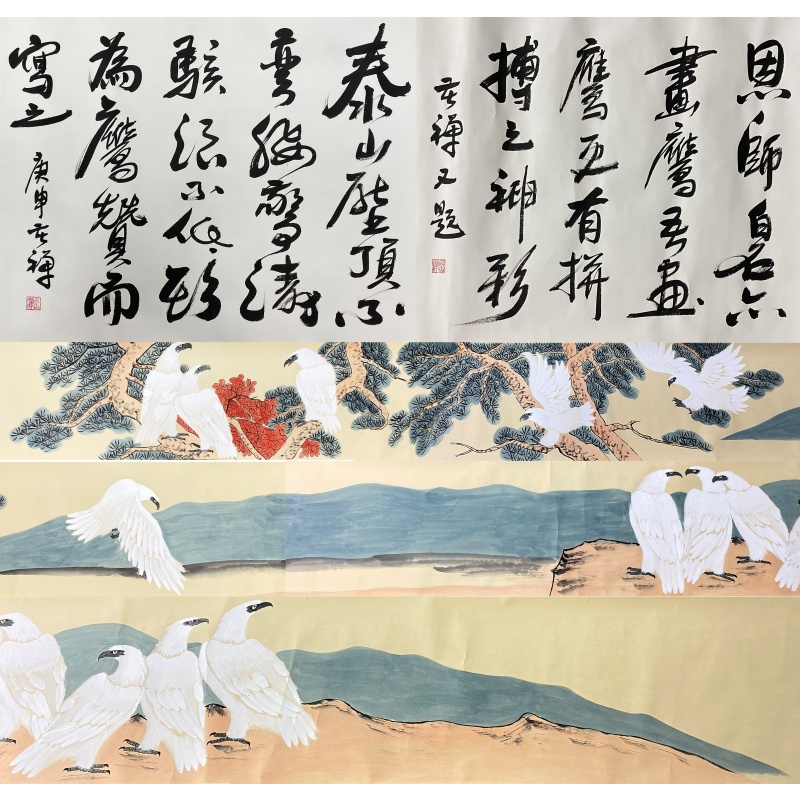 恩師白石亦
畫鷹吾畫
鷹更有拼
搏之神彩
苦禪又題
泰山壓頂不
彎腰驚濤
駭浪不低頭
為鷹贊而
寫之
庚申苦禪